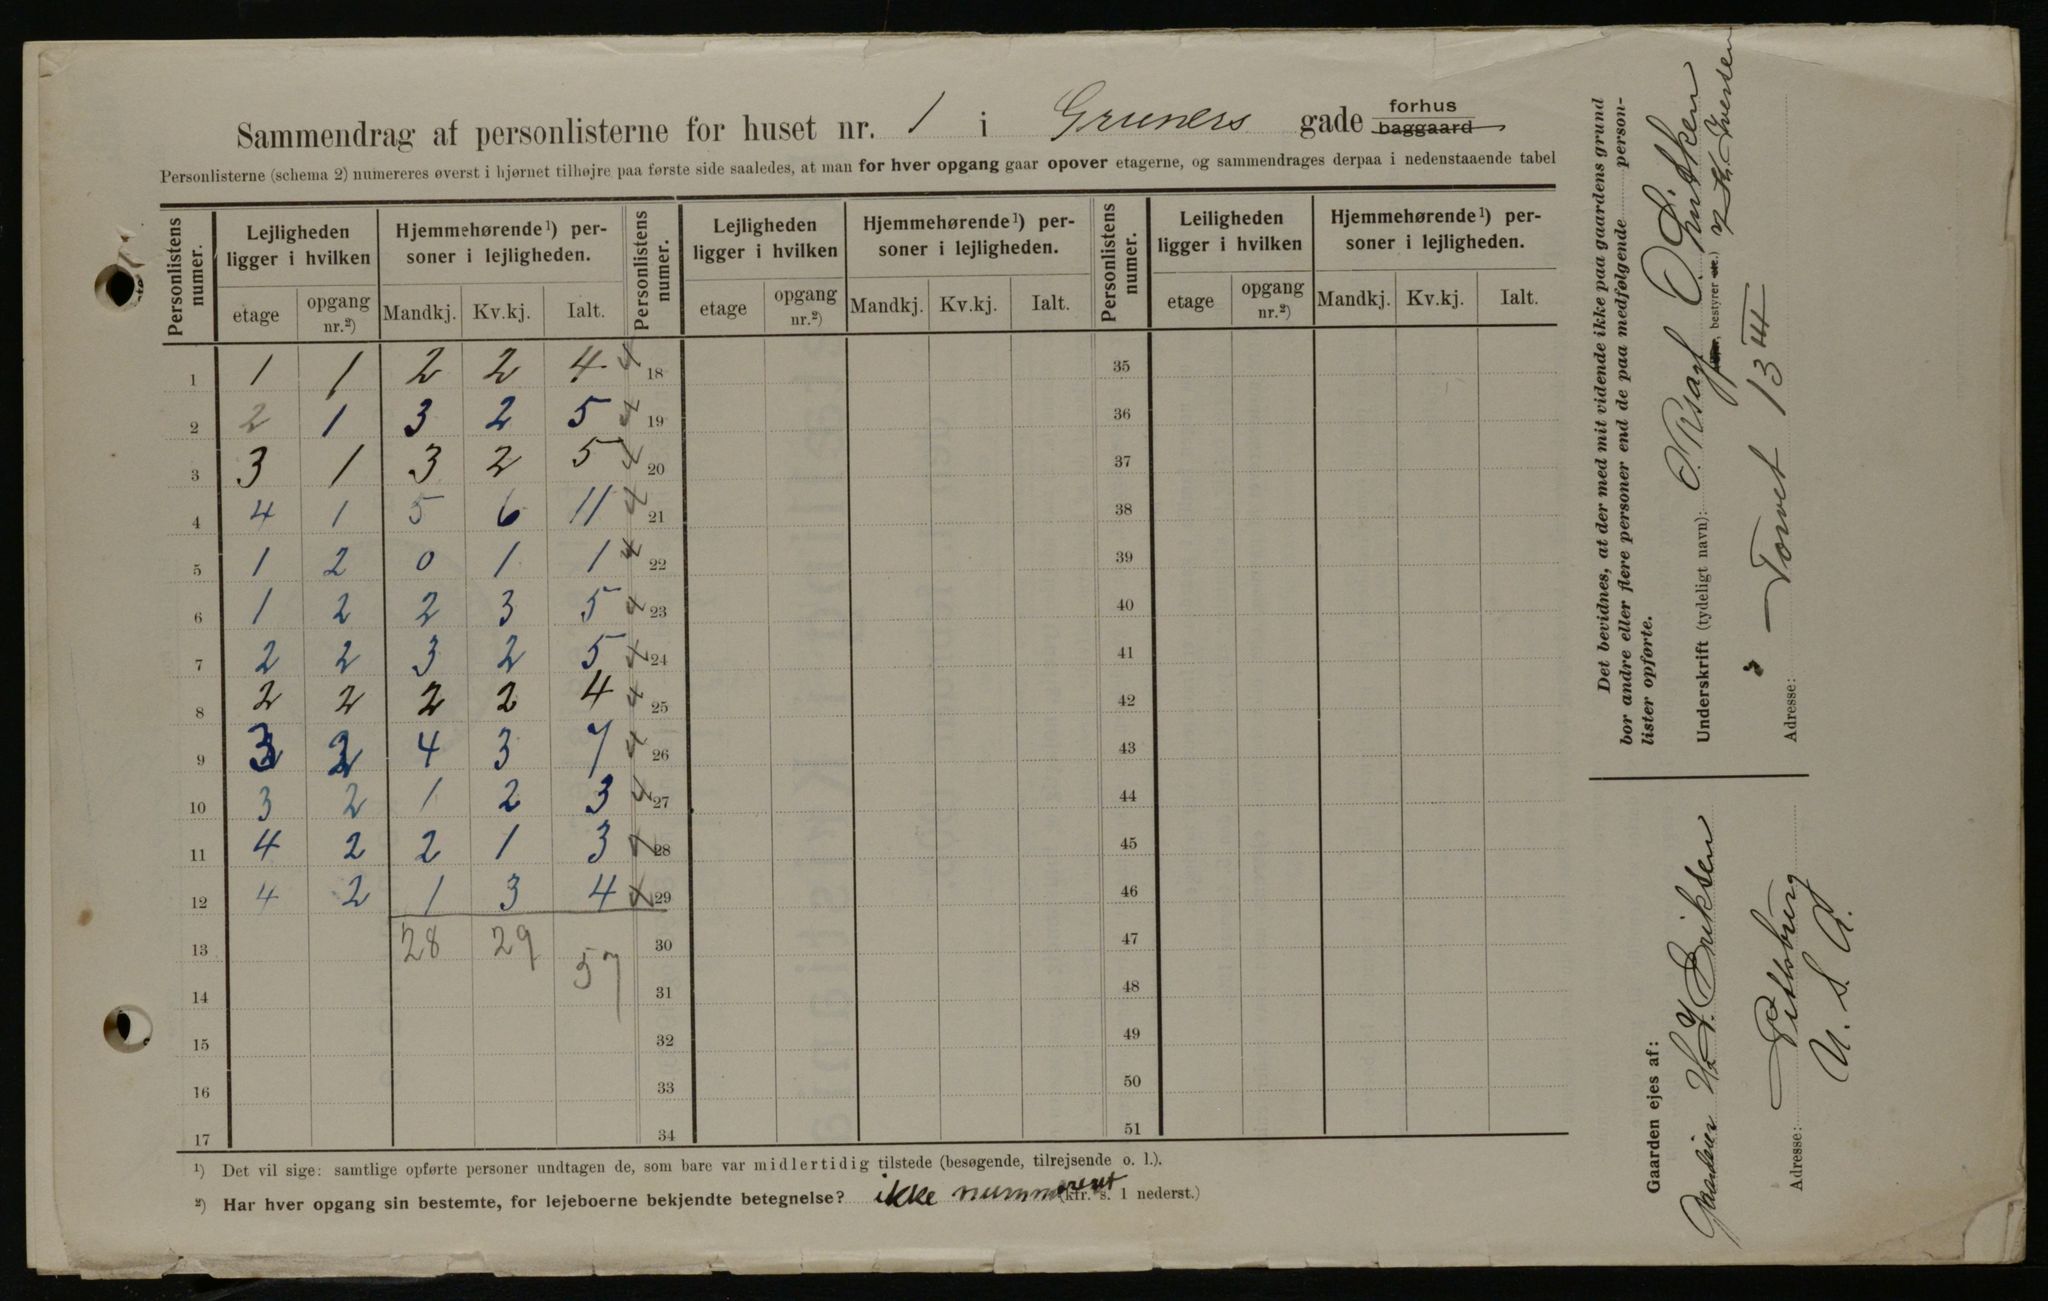 Sammendrag af personlisterne for huset nr. 1 i Gruners gade forhus baggaard
Personlisterne (schema 2) numereres øverst i hjørnet tilhøjre paa første side saaledes, at man for hver opgang gaar opover etagerne, og sammendrages derpaa i nedenstaaende tabel
Personlistens numer. Lejligheden ligger i hvilken Hjemmehørende ¹) personer i lejligheden. Personlistens numer. Lejligheden ligger i hvilken Hjemmehørende ¹) personer i lejligheden. Personlistens numer. Leiligheden ligger i hvilken Hjemmehørende ¹) personer i lejligheden.
etage opgang nr.²) Mandkj. Kv.kj. Ialt. etage opgang nr.²) Mandkj. Kv.kj. Ialt. etage opgang nr.²) Mandkj. Kv.kj. Ialt.
1 1 1 2 2 4 18 35
2 2 1 3 2 5 19 36
3 3 1 3 2 5 20 37
4 4 1 5 6 11 21 38
5 1 2 0 1 1 22 39
6 1 2 2 3 5 23 40
7 2 2 3 2 5 24 41
8 2 2 2 2 4 25 42
9 3 2 4 3 7 26 43
10 3 2 1 2 3 27 44
11 4 2 2 1 3 28 45
12 4 2 1 3 4 29 46
13 28 29 57 30 47
14 31 48
15 32 49
16 33 50
17 34 51
¹) Det vil sige: samtlige opførte personer undtagen de, som bare var midlertidig tilstede (besøgende, tilrejsende o. l.).
²) Har hver opgang sin bestemte, for lejeboerne bekjendte betegnelse? ikke nummereret (kfr. s. 1 nederst.)
Det bevidnes, at der med mit vidende ikke paa gaardens grund
bor andre eller flere personer end de paa medfølgende personlister opførte.
Underskrift (tydeligt navn):
bestyrer etc.)
Iversen
Adresse: Torvet 13 III
Gaarden ejes af:
H. J. Eriksen
Adresse: Pittsburg
U. S. A.